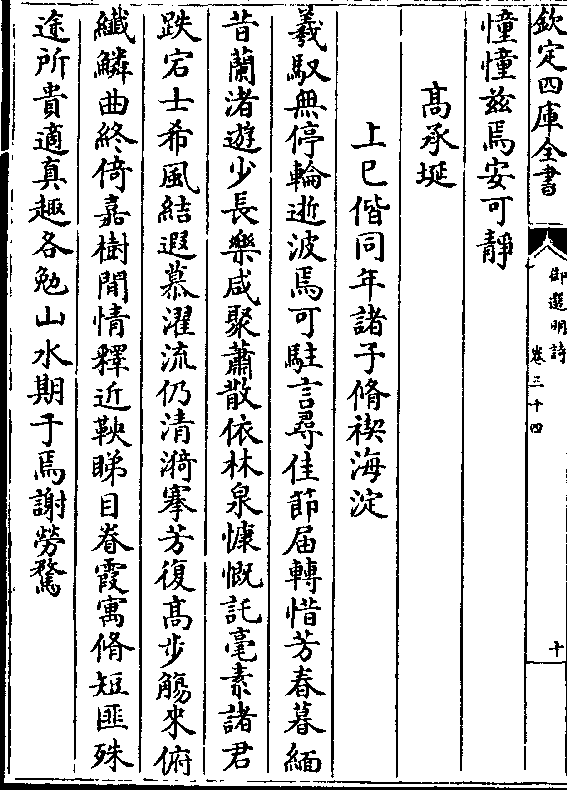 欽定四庫全書
御選明詩
卷三十四
十
憧憧茲焉安可靜
高承埏
上巳偕同年諸子脩禊海淀
羲馭無停輪逝波焉可駐言尋佳節届轉惜芳春暮緬
昔蘭渚遊少長樂咸聚蕭散依林泉慷慨託毫素諸君
跌宕士希風結遐慕濯流仍清漪搴芳復高步觴来俯
纎鱗曲終倚嘉樹閒情釋近鞅睇目眷霞寓脩短匪殊
途所貴適真趣各勉山水期于焉謝勞騖